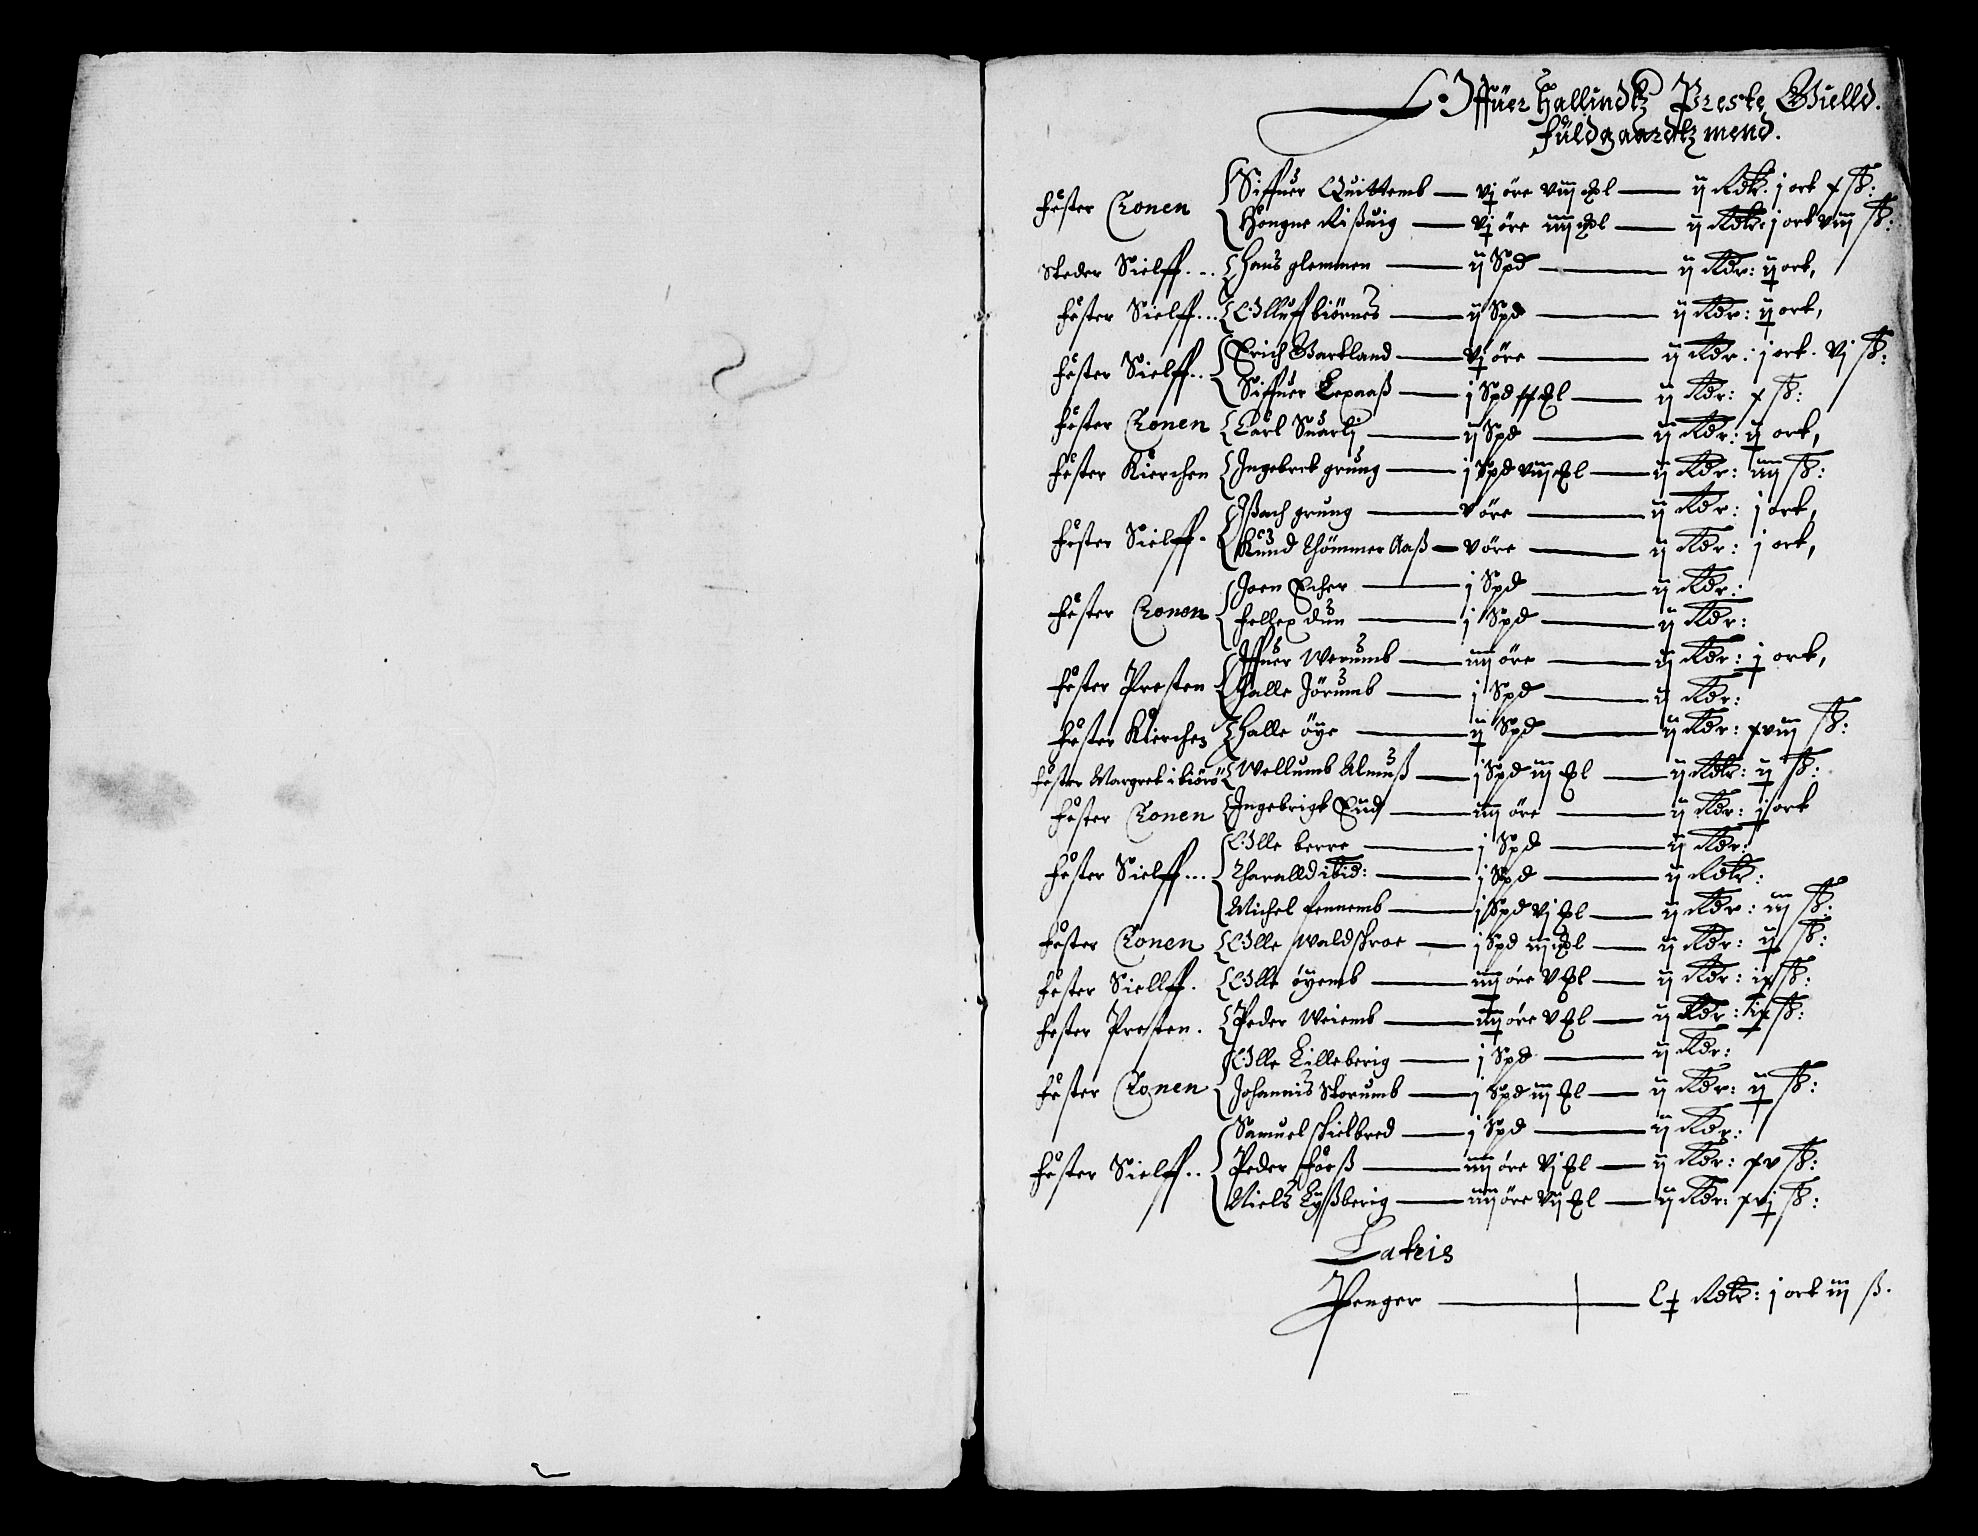 Offuer Hallindtz Preste Gielld.
fuldgaardtzmend.
fester Cronen { Siffuer Quittemb — vj øre viij El — ij Rdlr: j ort x ß:
Hongne Rißuig — vj øre iiij El — ij Rdlr: j ort viij ß:
Steder Sielff... { Hans glemmen — ij Spd — ij Rdr: ij ort,
fester Sielff... { Olluff biørnes — ij Spd — ij Rdr: ij ort,
fester Sielff.. { Erich Barkland — vj øre — ij Rdr: j ort. vj ß:
Siffuer Lexaaß — j Spd El — ij Rdr: x ß:
fester Cronen { Carl Suarlj — ij Spd — ij Rdr: ij ort,
fester Kierchen { Ingebret grung — j Spd viij El — ij Rdr: iiij ß:
fester Sielff. { Ißach grung — v øre — ij Rdr: j ort,
Knud Thømmer Aaß — v øre — ij Rdr: j ort,
fester Cronen { Joen Echer — j Spd — ij Rdr:
fellex dun — j Spd — ij Rdr:
fester Presten { Iffuer Werumb — iiij øre — ij Rdr: j ort,
Halle Jørumb — j Spd — ij Rdr:
fester Kierchen { Halle øye — ij Spd — ij Rdr: xviij ß:
fester Margret i biørø { Wellumb Almuß — j Spd iij El — ij Rdlr: ij ß:
fester Cronen { Ingebrigt Eud — iiij øre — ij Rdr: j ort
fester Sielff... { Olle berre — j Spd — ij Rdr:
Tharalld ibid: — j Spd — ij Rdlr:
Michel fennemb — j Spd vj El — ij Rdr: iij ß:
fester Cronen { Olle Waldschroe — j Spd iij El — ij Rdr: ij ß:
fester Siellff. { Olle øyemb — iiij øre v El — ij Rdr: ix ß:
fester Presten. { Peder Weiemb — iiij øre v El — ij Rdr: ix ß:
fester Cronen { Olle Lilleberig — j Spd — ij Rdr:
Johannis Storumb — j Spd iij El — ij Rdr: ij ß:
fester Sielff.. { Samuel schielbred — j Spd — ij Rdr:
Peder foeß — iiij øre vj El — ij Rdr: xv ß:
Niels Lyßberig — iiij øre vij El — ij Rdr: xvj ß:
Latris
Penger — Lx Rdlr: j ort iij ß.